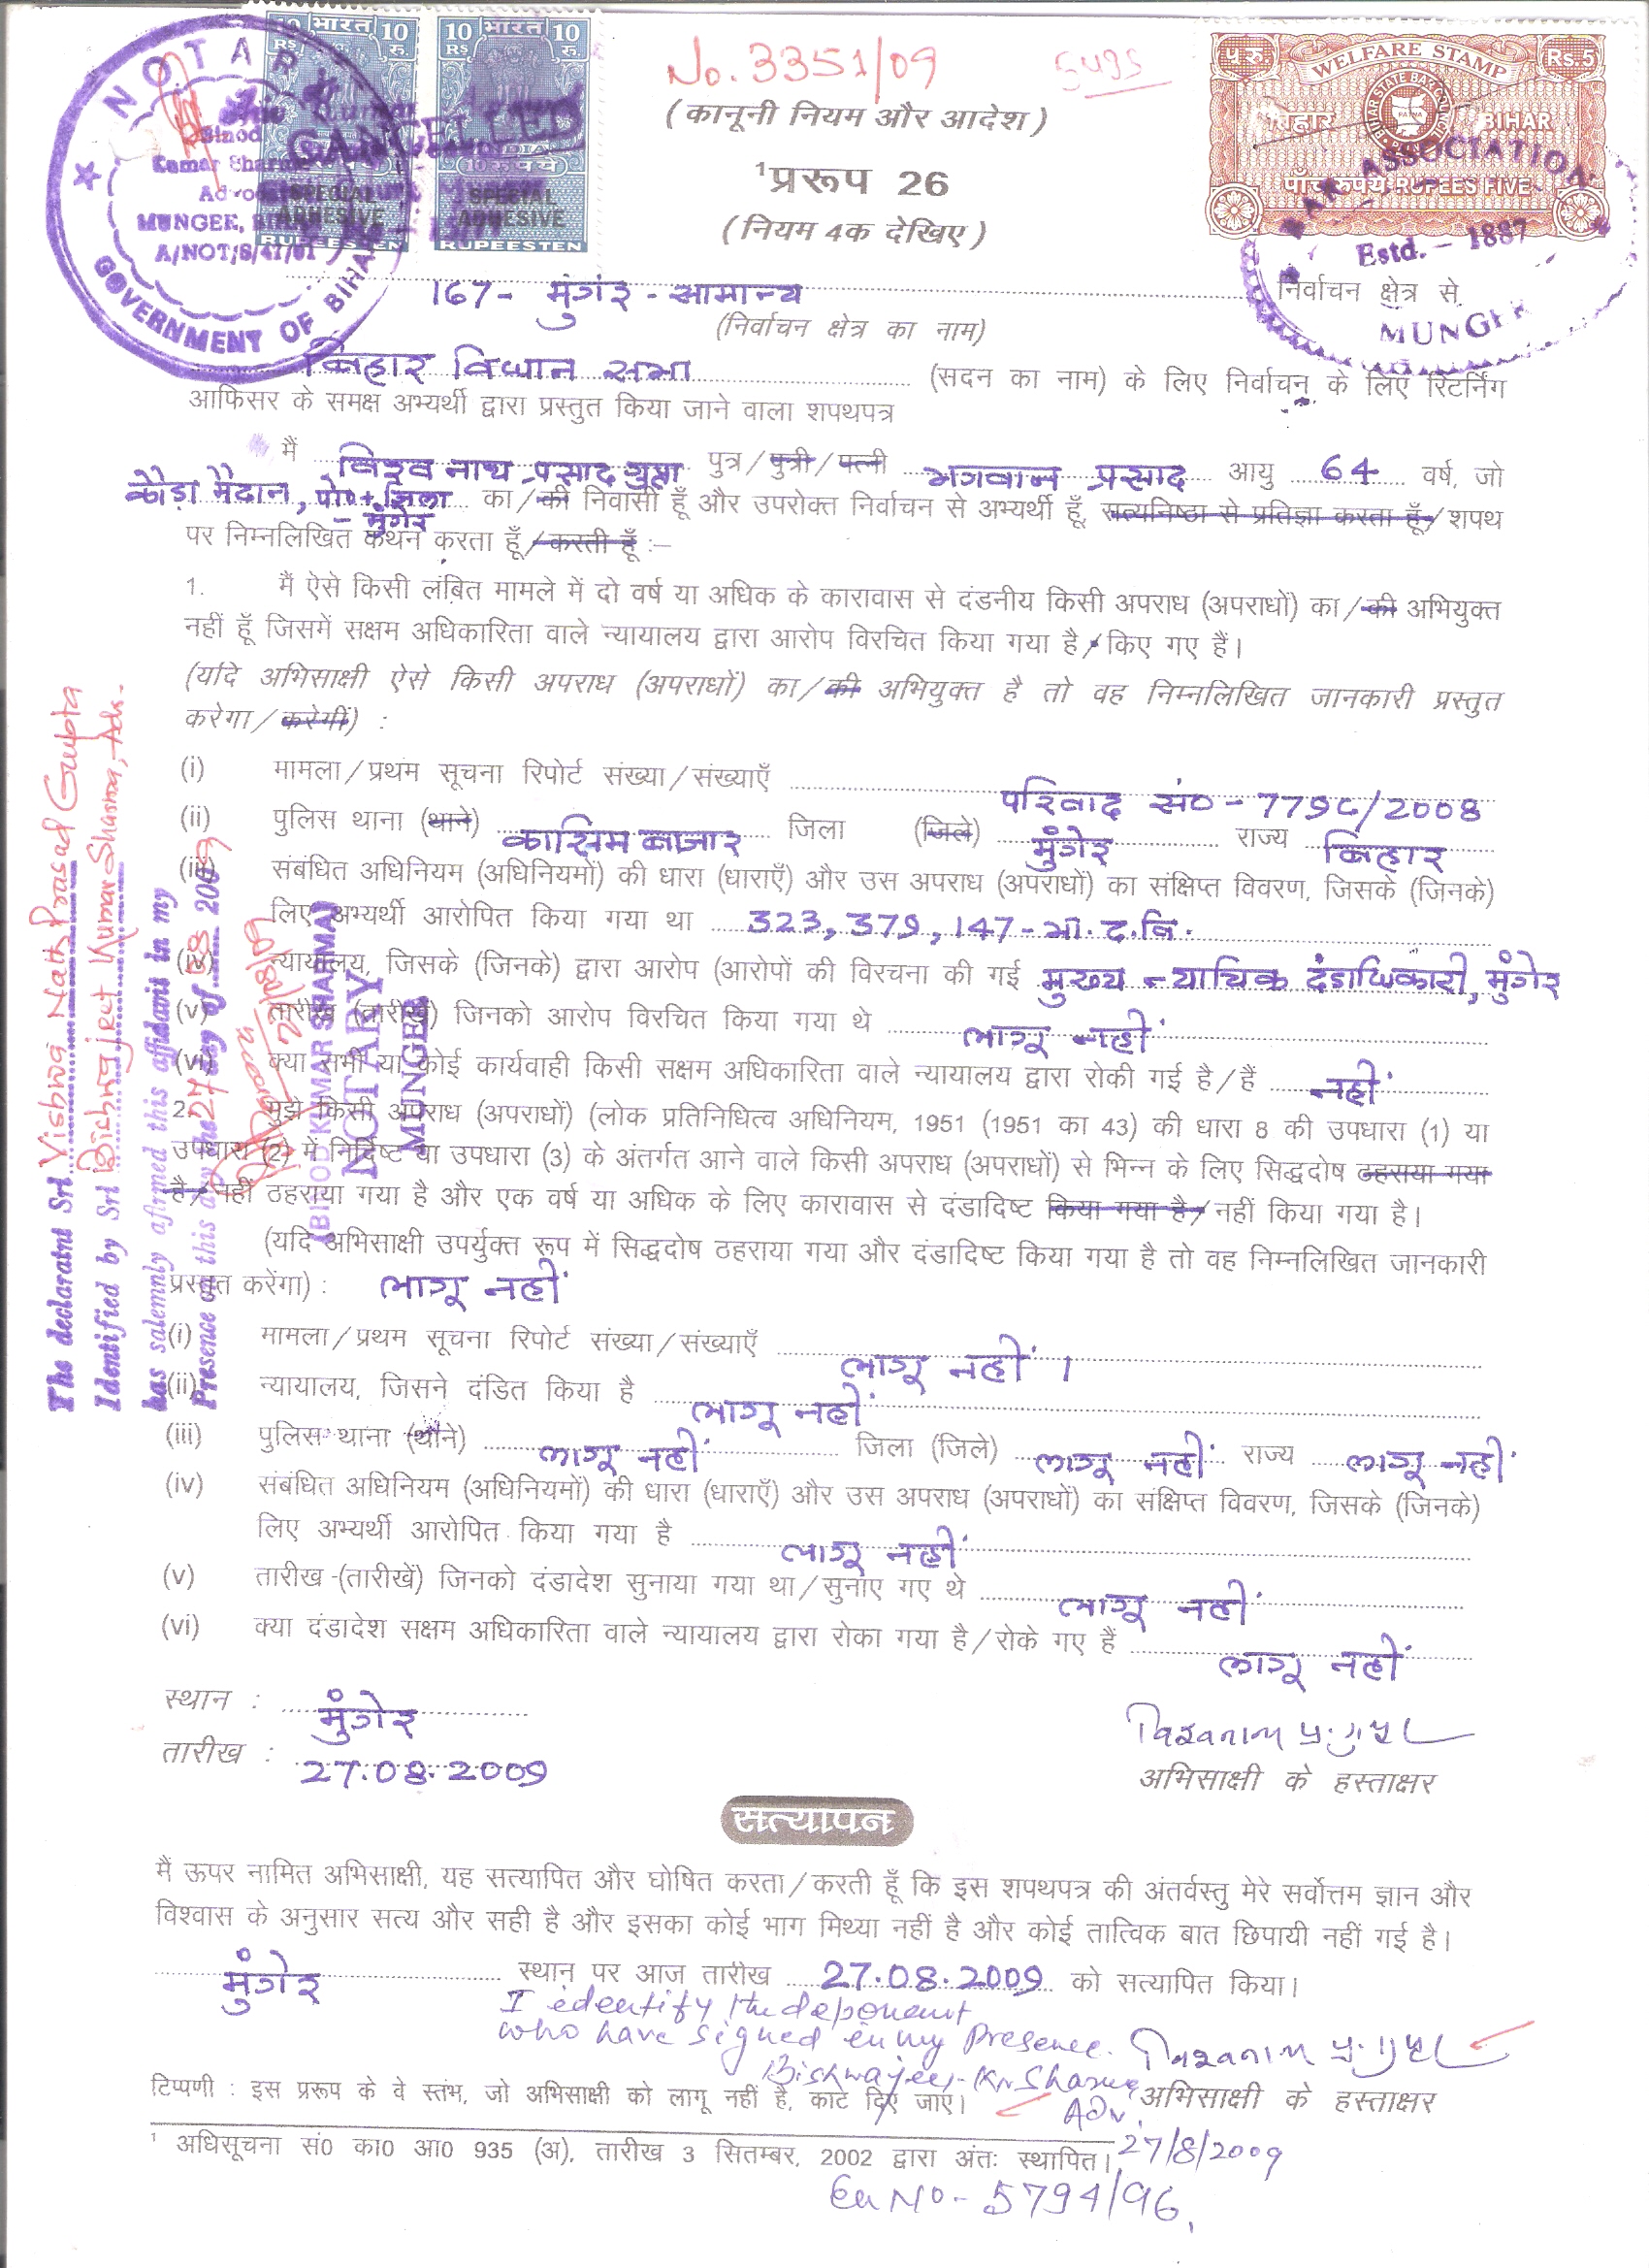 No. 3351/09
(कानूनी नियम और आदेश)
¹प्ररूप 26
(नियम 4क देखिए)
NOTARY
Binod
Kumar Sharma
Advocate
MUNGER,
A/NOT/8/41/01
GOVERNMENT OF BIHAR
भारत
10 RS 10 रु.
SPECIAL ADHESIVE
RUPEES TEN
भारत
10 RS 10 रु.
INDIA
10 रुपये
SPECIAL ADHESIVE
RUPEES TEN
CANCELLED
प रु WELFARE STAMP Rs.5
बिहार BIHAR
पाँच रुपये RUPEES FIVE
BAR ASSOCIATION
Estd. - 1887
MUNGER
167- मुंगेर - सामान्य निर्वाचन क्षेत्र से
(निर्वाचन क्षेत्र का नाम)
बिहार विधान सभा (सदन का नाम) के लिए निर्वाचन के लिए रिटर्निंग
आफिसर के समक्ष अभ्यर्थी द्वारा प्रस्तुत किया जाने वाला शपथपत्र
मैं विश्व नाथ प्रसाद गुप्ता पुत्र/पुत्री/पत्नी भगवान प्रसाद आयु 64 वर्ष, जो
कौड़ा मैदान, पो०+जिला - मुंगेर का/की निवासी हूँ और उपरोक्त निर्वाचन से अभ्यर्थी हूँ, सत्यनिष्ठा से प्रतिज्ञा करता हूँ/शपथ
पर निम्नलिखित कथन करता हूँ/करती हूँ :–
1. मैं ऐसे किसी लंबित मामले में दो वर्ष या अधिक के कारावास से दंडनीय किसी अपराध (अपराधों) का/की अभियुक्त
नहीं हूँ जिसमें सक्षम अधिकारिता वाले न्यायालय द्वारा आरोप विरचित किया गया है/किए गए हैं।
(यदि अभिसाक्षी ऐसे किसी अपराध (अपराधों) का/की अभियुक्त है तो वह निम्नलिखित जानकारी प्रस्तुत
करेगा/करेगीं) :
(i) मामला/प्रथम सूचना रिपोर्ट संख्या/संख्याएँ परिवाद सं०-779C/2008
(ii) पुलिस थाना (थाने) कासिम बाजार जिला (जिले) मुंगेर राज्य बिहार
(iii) संबंधित अधिनियम (अधिनियमों) की धारा (धाराएँ) और उस अपराध (अपराधों) का संक्षिप्त विवरण, जिसके (जिनके)
लिए अभ्यर्थी आरोपित किया गया था 323, 379, 147- भा. द. वि.
(iv) न्यायालय, जिसके (जिनके) द्वारा आरोप (आरोपों की विरचना की गई मुख्य न्यायिक दंडाधिकारी, मुंगेर
(v) तारीख (तारीखें) जिनको आरोप विरचित किया गया थे लागू नहीं
(vi) क्या सभी या कोई कार्यवाही किसी सक्षम अधिकारिता वाले न्यायालय द्वारा रोकी गई है/हैं नहीं
2. मुझे किसी अपराध (अपराधों) (लोक प्रतिनिधित्व अधिनियम, 1951 (1951 का 43) की धारा 8 की उपधारा (1) या
उपधारा (2) में निर्दिष्ट या उपधारा (3) के अंतर्गत आने वाले किसी अपराध (अपराधों) से भिन्न के लिए सिद्धदोष ठहराया गया
है/नहीं ठहराया गया है और एक वर्ष या अधिक के लिए कारावास से दंडादिष्ट किया गया है/नहीं किया गया है।
(यदि अभिसाक्षी उपर्युक्त रूप में सिद्धदोष ठहराया गया और दंडादिष्ट किया गया है तो वह निम्नलिखित जानकारी
प्रस्तुत करेंगा) : लागू नहीं
(i) मामला/प्रथम सूचना रिपोर्ट संख्या/संख्याएँ लागू नहीं ।
(ii) न्यायालय, जिसने दंडित किया है लागू नहीं
(iii) पुलिस थाना (थाने) लागू नहीं जिला (जिले) लागू नहीं राज्य लागू नहीं
(iv) संबंधित अधिनियम (अधिनियमों) की धारा (धाराएँ) और उस अपराध (अपराधों) का संक्षिप्त विवरण, जिसके (जिनके)
लिए अभ्यर्थी आरोपित किया गया है लागू नहीं
(v) तारीख (तारीखें) जिनको दंडादेश सुनाया गया था/सुनाए गए थे लागू नहीं
(vi) क्या दंडादेश सक्षम अधिकारिता वाले न्यायालय द्वारा रोका गया है/रोके गए हैं लागू नहीं
The declaratnt Sri Vishwa Nath Prasad Gupta
Identified by Sri Bishwajeet Kumar Sharma, Adv.
has salemnly afirmed this affidavit in my
Presence on this the 27 day of 8 2009
(BINOD KUMAR SHARMA)
NOTARY
MUNGER
स्थान : मुंगेर
तारीख : 27.08.2009
विश्वनाथ प्र. गुप्ता
अभिसाक्षी के हस्ताक्षर
सत्यापन
मैं ऊपर नामित अभिसाक्षी, यह सत्यापित और घोषित करता/करती हूँ कि इस शपथपत्र की अंतर्वस्तु मेरे सर्वोत्तम ज्ञान और
विश्वास के अनुसार सत्य और सही है और इसका कोई भाग मिथ्या नहीं है और कोई तात्विक बात छिपायी नहीं गई है।
मुंगेर स्थान पर आज तारीख 27.08.2009 को सत्यापित किया।
I identify the deponent
who have signed in my presence.
विश्वनाथ प्र. गुप्ता
Bishwajeet Kr Sharma
Adv.
27/8/2009
En No- 5794/96,
अभिसाक्षी के हस्ताक्षर
टिप्पणी : इस प्ररूप के वे स्तंभ, जो अभिसाक्षी को लागू नहीं है, काट दिए जाएं।
¹ अधिसूचना सं0 का0 आ0 935 (अ), तारीख 3 सितम्बर, 2002 द्वारा अंतः स्थापित।